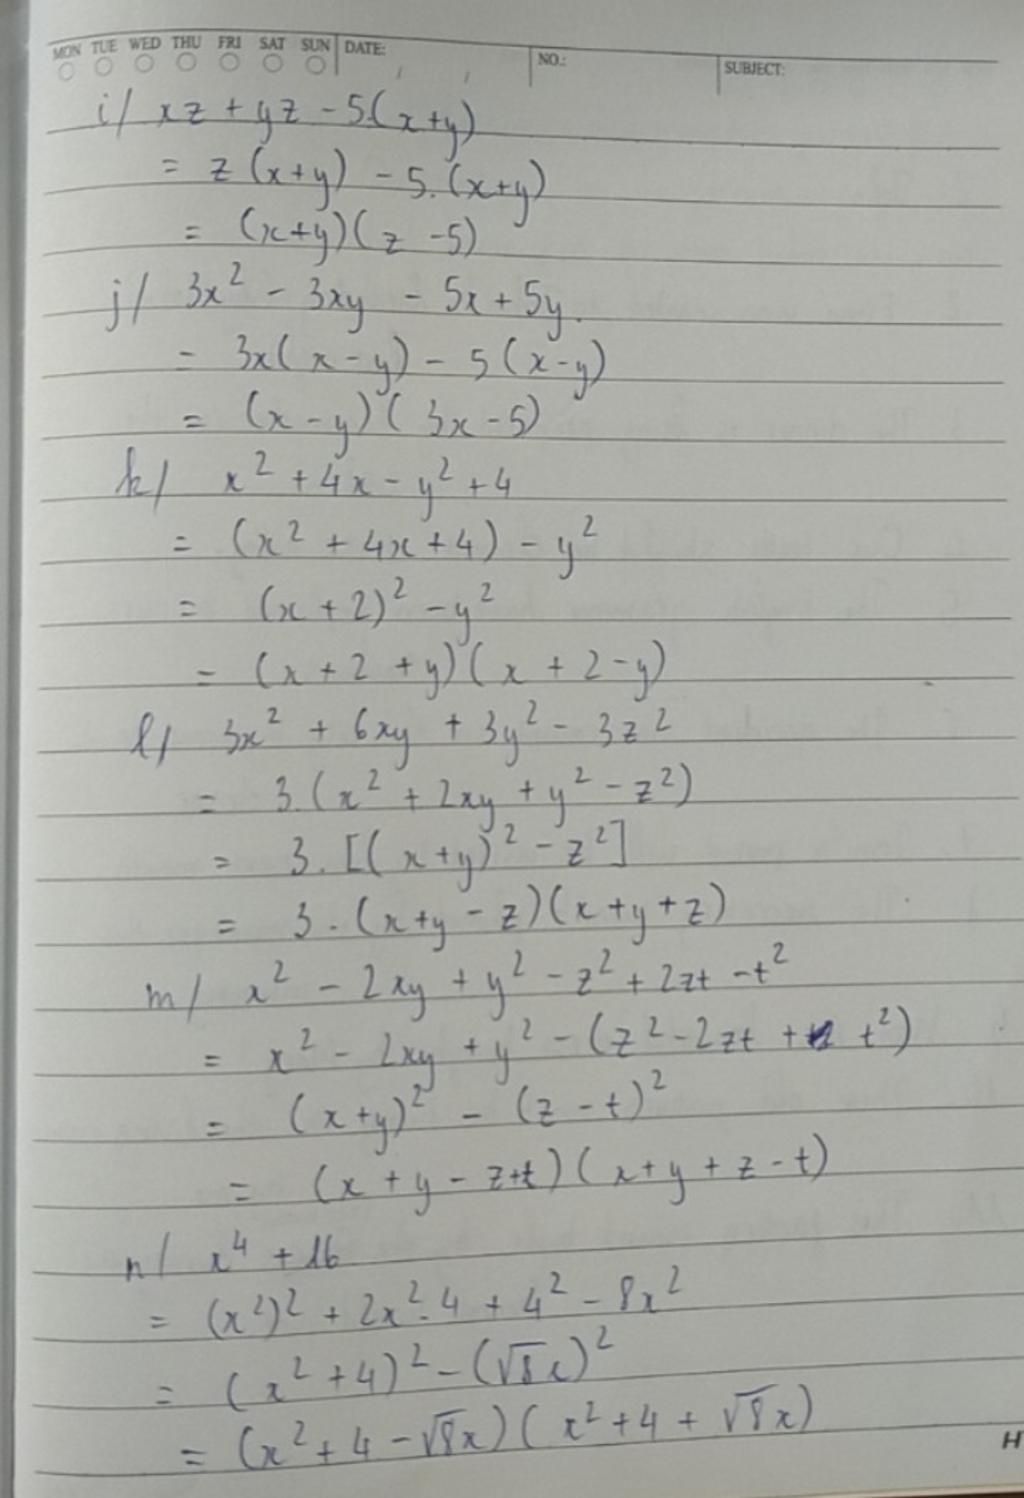 MON TUE WED THU FRI SAT SUN DATE: / / NO.: SUBJECT:
i/ xz + yz - 5(x+y)
= z(x+y) - 5.(x+y)
= (x+y)(z - 5)
j/ 3x² - 3xy - 5x + 5y.
= 3x(x - y) - 5(x - y)
= (x - y)(3x - 5)
k/ x² + 4x - y² + 4
= (x² + 4x + 4) - y²
= (x + 2)² - y²
= (x + 2 + y)(x + 2 - y)
l/ 3x² + 6xy + 3y² - 3z²
= 3.(x² + 2xy + y² - z²)
= 3.[(x+y)² - z²]
= 3.(x+y - z)(x+y+z)
m/ x² - 2xy + y² - z² + 2zt - t²
= x² - 2xy + y² - (z² - 2zt + t²)
= (x+y)² - (z - t)²
= (x + y - z+t)(x+y + z - t)
n/ x⁴ + 16
= (x²)² + 2x².4 + 4² - 8x²
= (x² + 4)² - (√8x)²
= (x² + 4 - √8x)(x² + 4 + √8x)
H